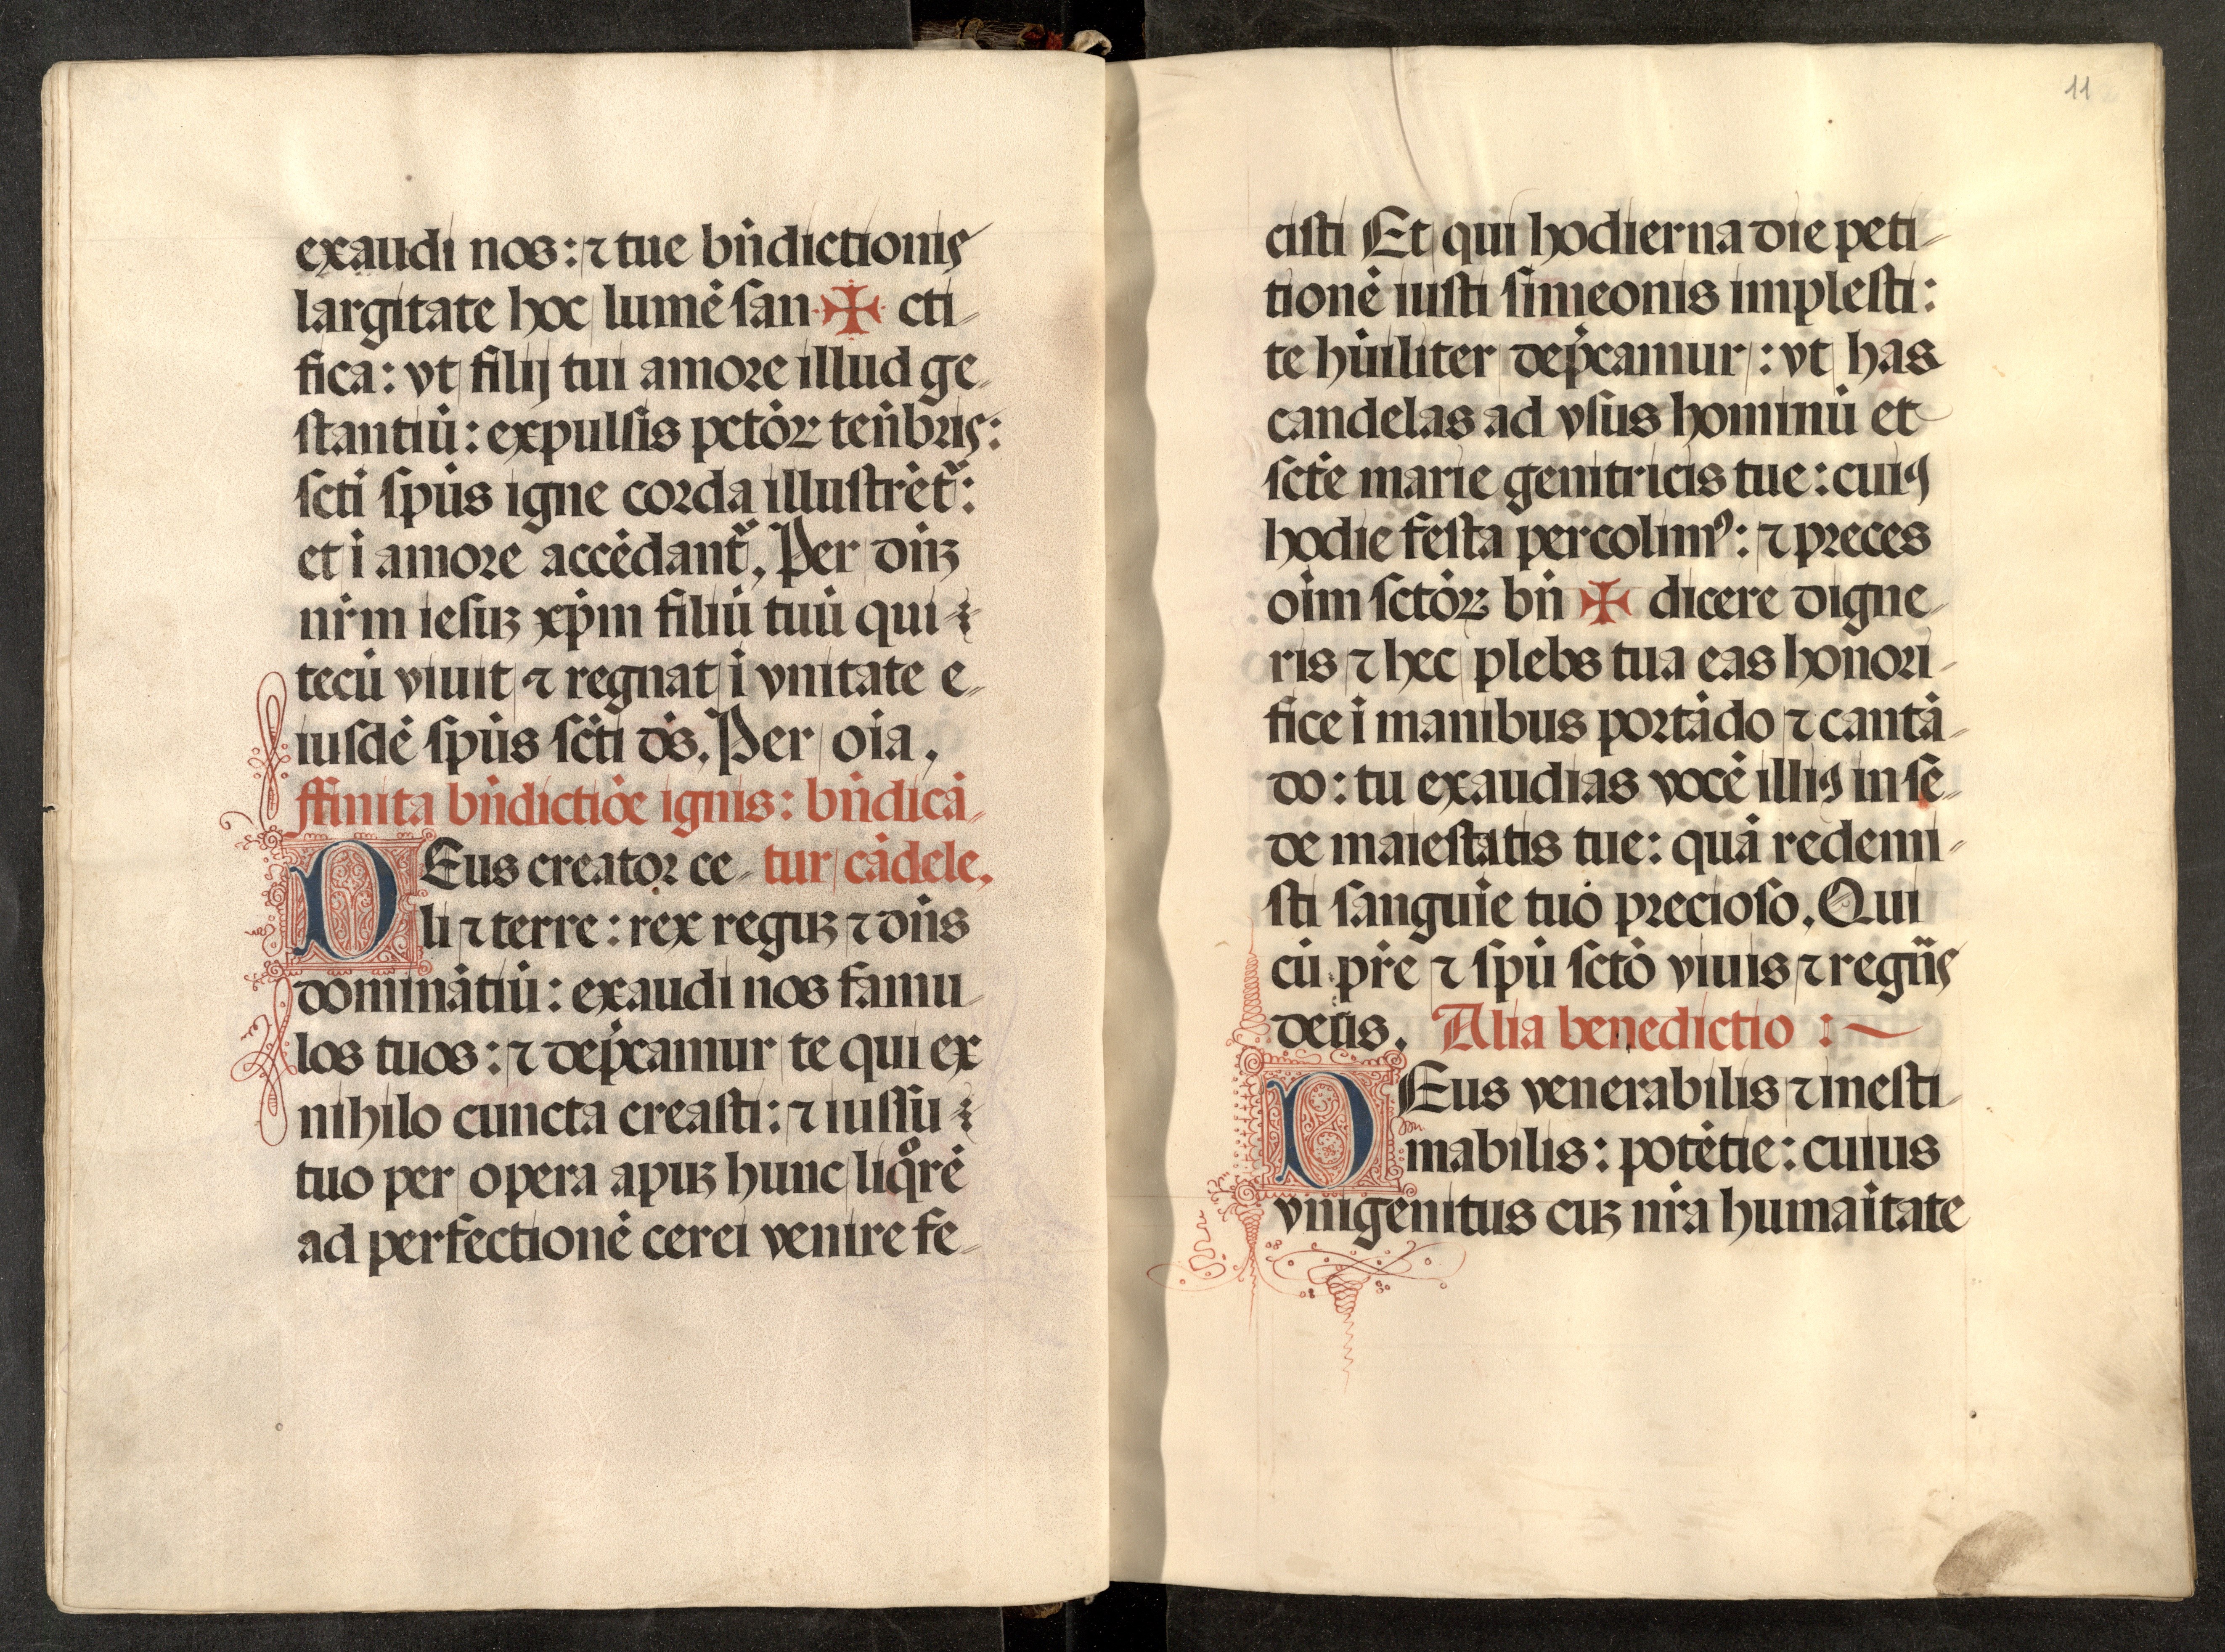 exaudi nos: ⁊ tue bn̄dictionis
largitate hoc lumē san ✠ cti-
fica: vt filij tui amore illud ge-
stantiū: expulsis pctōꝝ ten̄bris:
scti̅ spūs igne corda illustrēt᷑:
et ī amore accēdant᷑, Per dn̄ꝫ
nr̄m iesuꝫ xp̄m filiū tuū qui
tecū viuit ⁊ regnat ī vnitate e-
iusdē spūs sc̄ti ds̄. Per oīa,
ffinita bn̄dictiōe ignis: bn̄dicā-
DEus creator ce- tur cādele,
li ⁊ terre: rex reguꝫ ⁊ dn̄s
dominātiū: exaudi nos famu-
los tuos: ⁊ dep̄camur te qui ex
nihilo cuncta creasti: ⁊ iussu
tuo per opera apuꝫ hunc liqͦrē
ad perfectionē cerei venire fe-
11
cisti Et qui hodierna die peti-
tionē iusti simeonis implesti:
te hūiliter dep̄camur: vt has
candelas ad vsus hominū et
sctē marie genitricis tue: cuiꝰ
hodie festa percolimꝰ: ⁊ preces
oīm sctōꝝ bn̄ ✠ dicere digne-
ris ⁊ hec plebs tua eas honori-
fice ī manibus portādo ⁊ cantā-
do: tu exaudias vocē illiꝰ in se-
de maiestatis tue: quā redemi-
sti sanguīe tuo precioso. Qui
cū pr̄e ⁊ spū sctō viuis ⁊ regn̄s
deus. Alia benedictio :
DEus venerabilis ⁊ inesti-
mabilis: potētie: cuius
vnigenitus cuꝫ nr̄a humaītate